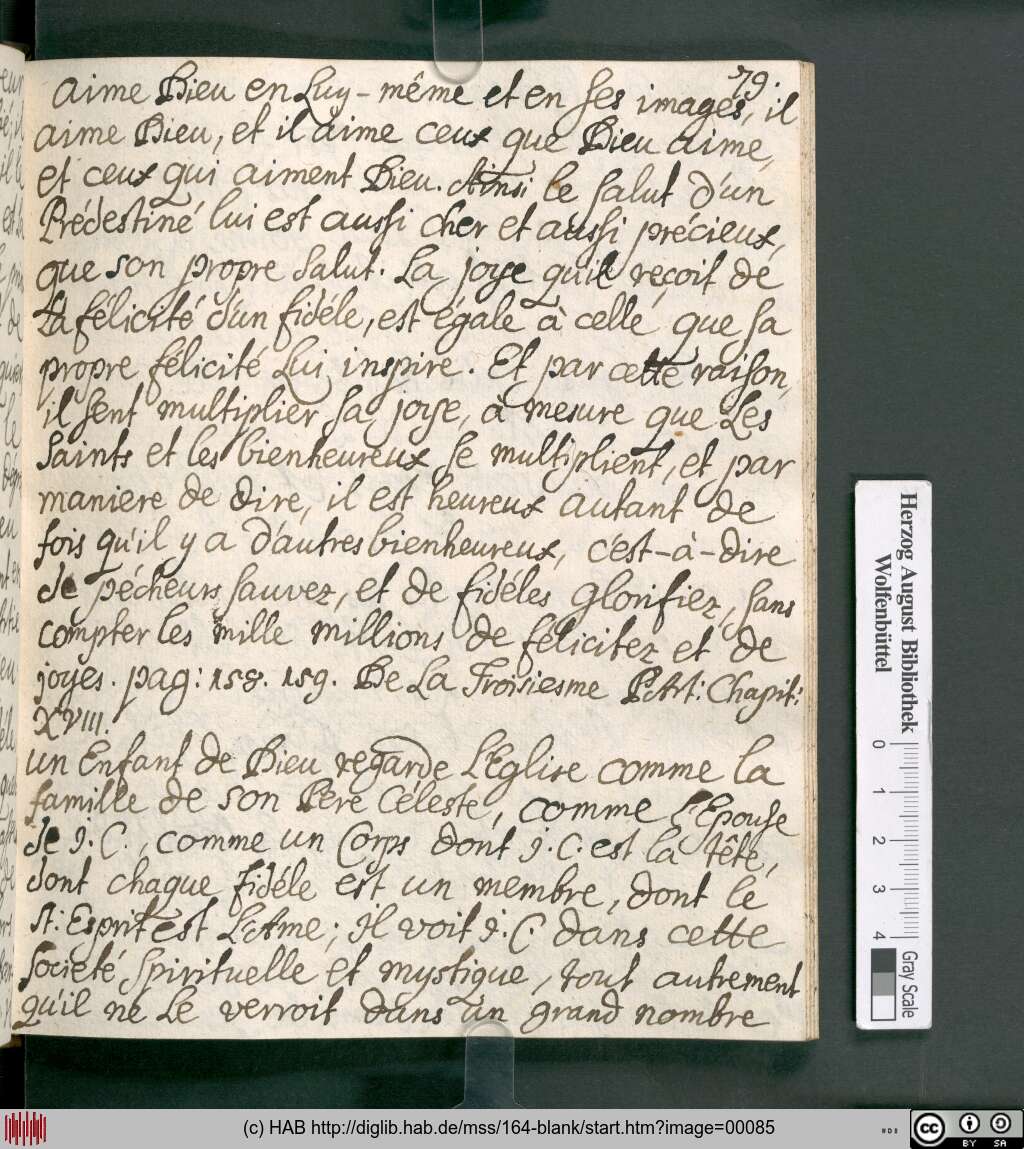 79.
aime Dieu en Luy-même et en ses images, il
aime Dieu, et il aime ceux que Dieu aime,
et ceux qui aiment Dieu. Ainsi le salut d'un
Prédestiné lui est aussi cher et aussi précieux,
que son propre salut. La joye qu'il reçoit de
La félicité d'un fidéle, est égale à celle que sa
propre félicité Lui inspire. Et par cette raison,
il sent multiplier sa joye, à mesure que Les
Saints et les bienheureux se multiplient, et par
maniere de dire, il est heureux autant de
fois qu'il y a d'autres bienheureux, c'est-à-dire
de pécheurs sauvez, et de fidéles glorifiez, sans
compter les mille millions de félicitez et de
joyes. pag: 158. 159. De La Troisiesme PArt: Chapit:
XVIII.
un Enfant de Dieu regarde L'Eglise comme la
famille de son Pere Céleste, comme l'Epouse
de J. C., comme un Corps dont J. C. est la tête,
dont chaque fidéle est un membre, dont le
st: Esprit est L'Ame; Il voit J. C dans cette
societé spirituelle et mystique, tout autrement
qu'il ne Le verroit dans un grand nombre
Herzog August Bibliothek
Wolfenbüttel
0 1 2 3 4
Gray Scale
(c) HAB http://diglib.hab.de/mss/164-blank/start.htm?image=00085
cc BY SA